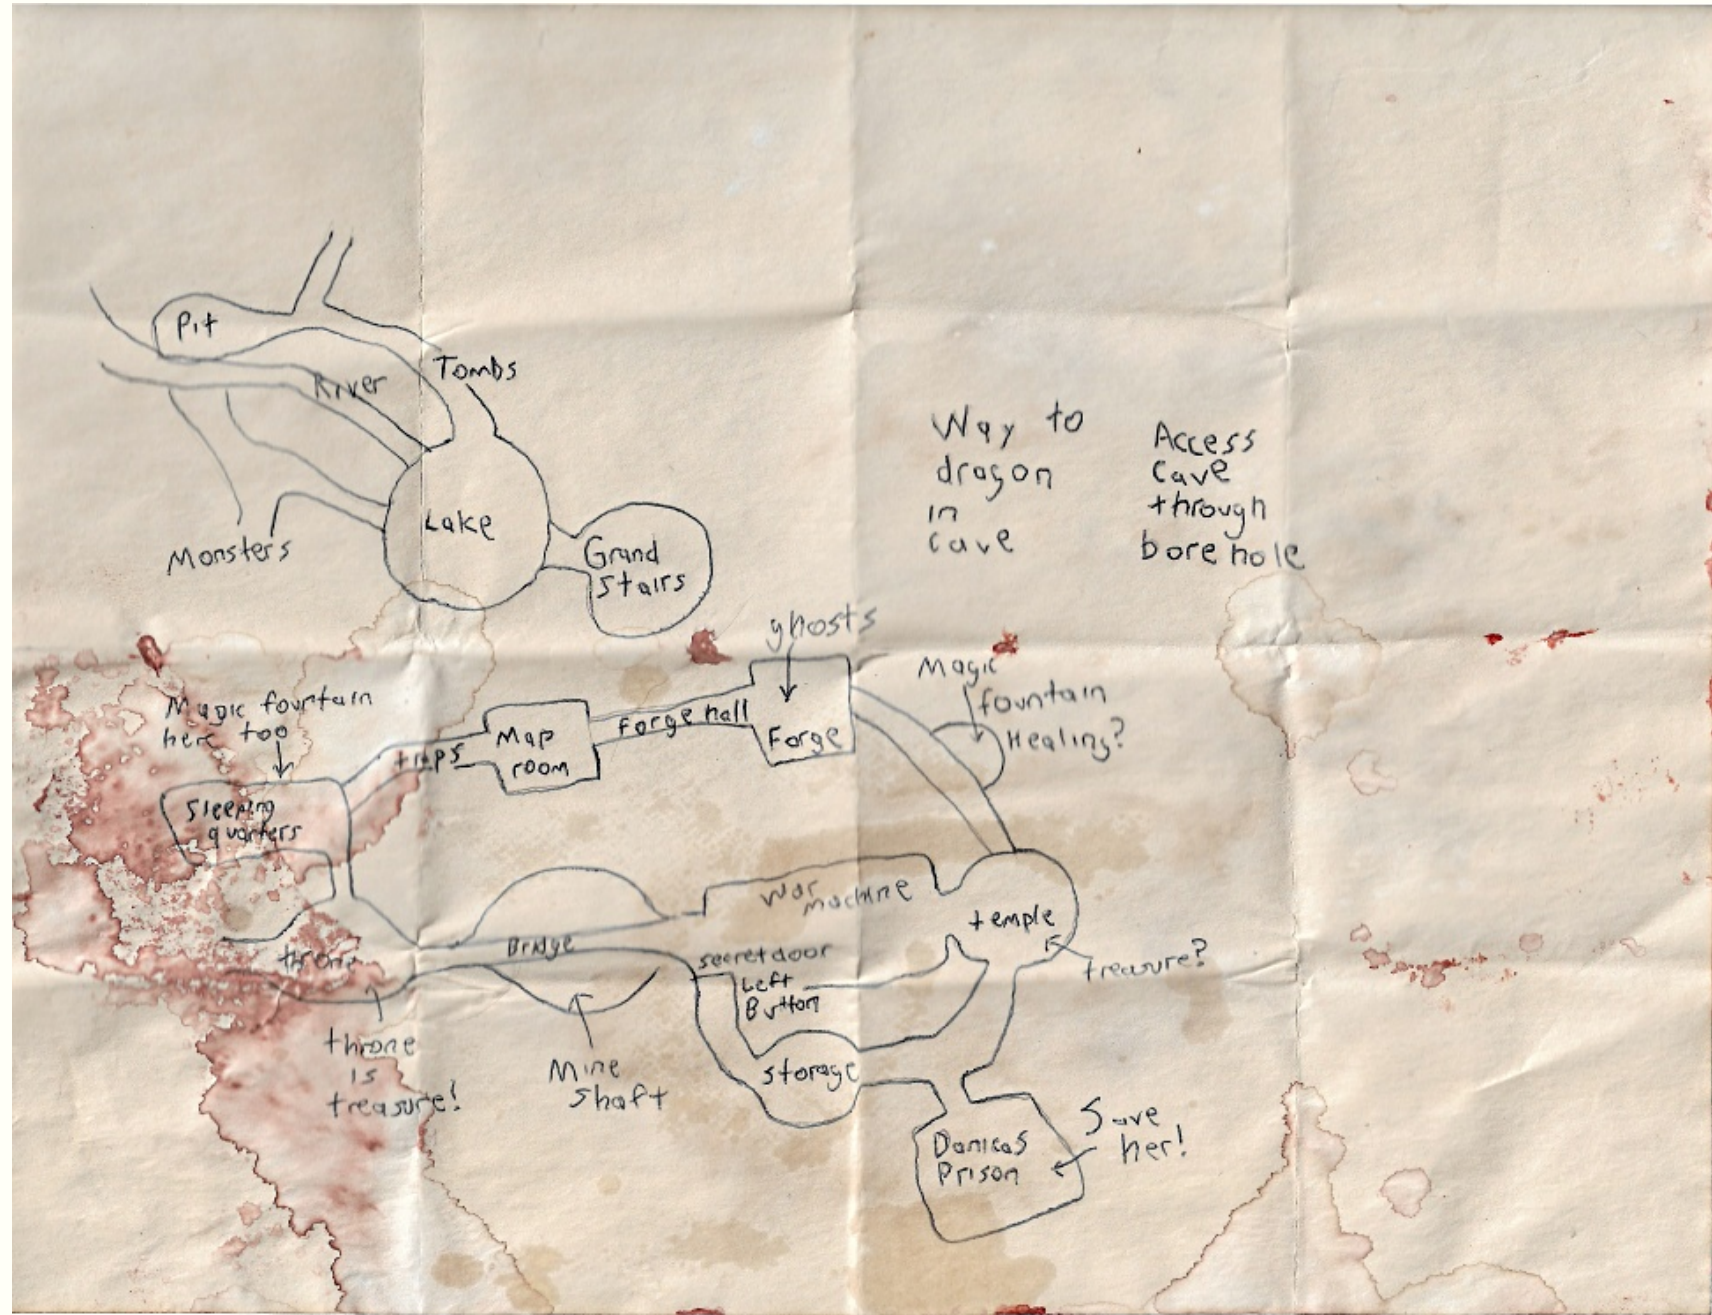 Pit
River
Tombs
Lake
Monsters
Grand
Stairs
Way to
dragon
in
cave
Access
cave
through
bore hole
ghosts
Magic
fountain
Healing?
Magic fountain
here too
traps
Map
room
Forge hall
Forge
Sleeping
quarters
War
machine
temple
treasure?
Bridge
secret door
Left
Button
throne
throne
is
treasure!
Mine
shaft
storage
Danicas
Prison
Save
her!